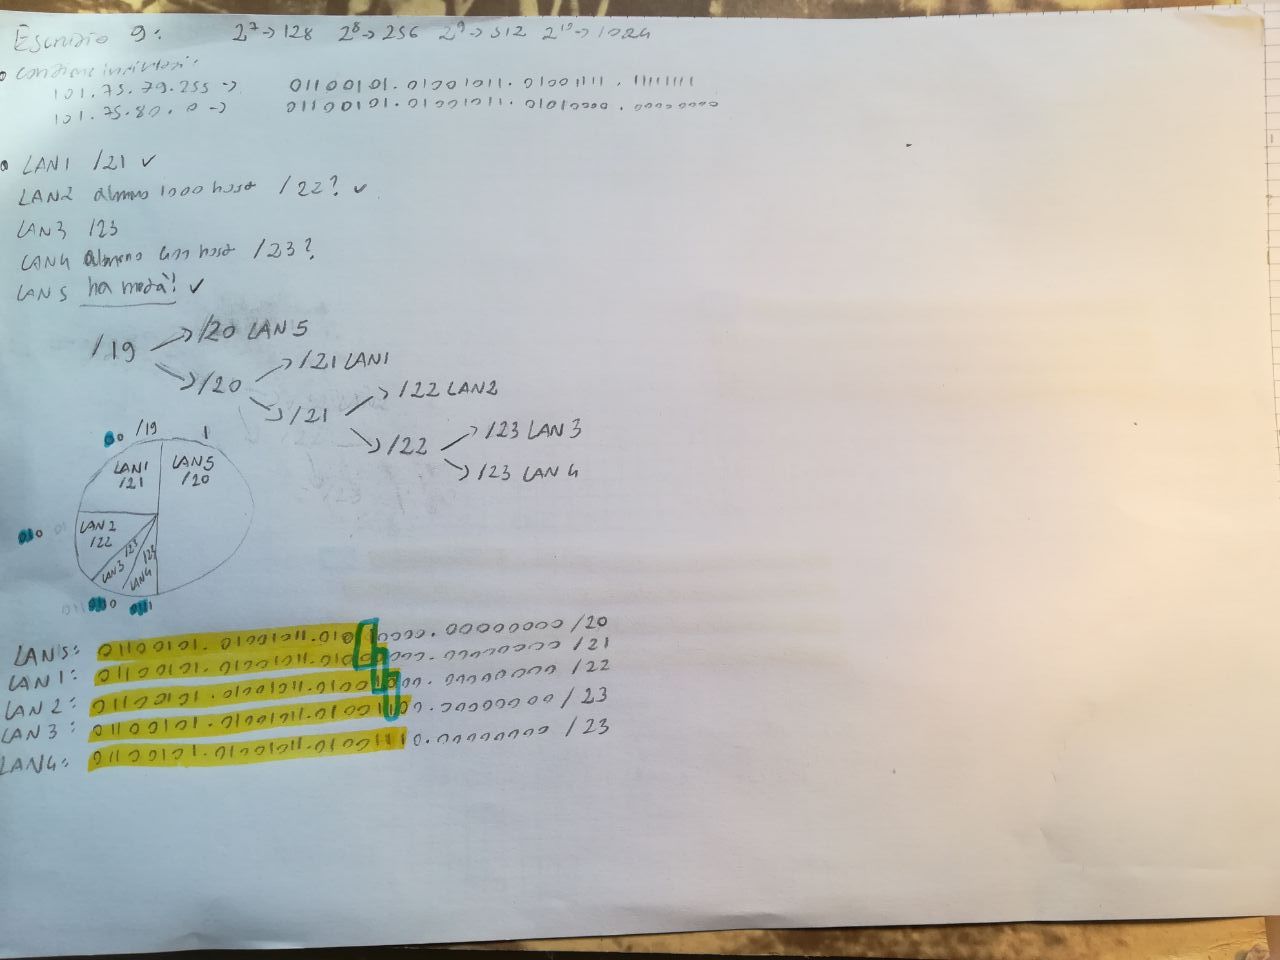 Esercizio 9: 2^7->128 2^8->256 2^9->512 2^10->1024
101.75.79.255 -> 01100101.01001011.01001111.11111111
101.75.80.0 -> 01100101.01001011.01010000.00000000
LAN1 /21 ✓
LAN2 almeno 1000 host /22? ✓
LAN3 /23
LAN4 almeno 400 host /23?
LAN5 ha metà! ✓
/19 -> /20 LAN5
-> /20 -> /21 LAN1
-> /21 -> /22 LAN2
-> /22 -> /23 LAN3
-> /23 LAN4
00 /19 1
LAN1 LAN5
/21 /20
010 LAN2
/22
LAN3 /23
LAN4 /23
0110 0111
LAN5: 01100101.01001011.01010000.00000000 /20
LAN1: 01100101.01001011.01000000.00000000 /21
LAN2: 01100101.01001011.01001000.00000000 /22
LAN3: 01100101.01001011.01001100.00000000 /23
LAN4: 01100101.01001011.01001110.00000000 /23